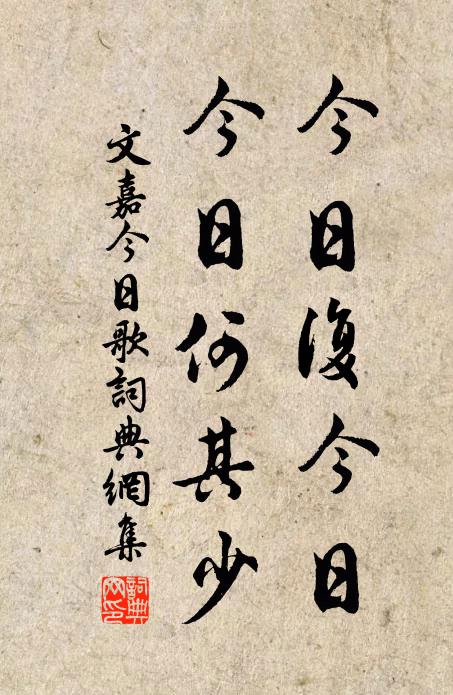 今日復今日
今日何其少
文嘉今日歌詞典網集
詞典網印